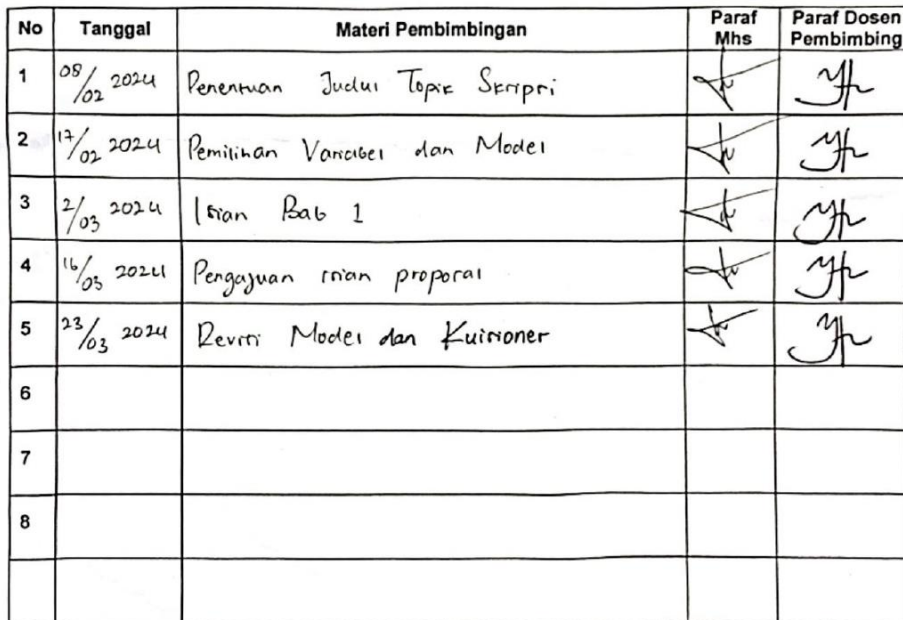 No Tanggal Materi Pembimbingan Paraf Mhs Paraf Dosen Pembimbing
1 08/02 2024 Penentuan Judul Topik Skripsi
2 17/02 2024 Pemilihan Variabel dan Model
3 2/03 2024 Isian Bab 1
4 16/03 2024 Pengajuan isian proposal
5 23/03 2024 Revisi Model dan Kuisioner
6
7
8